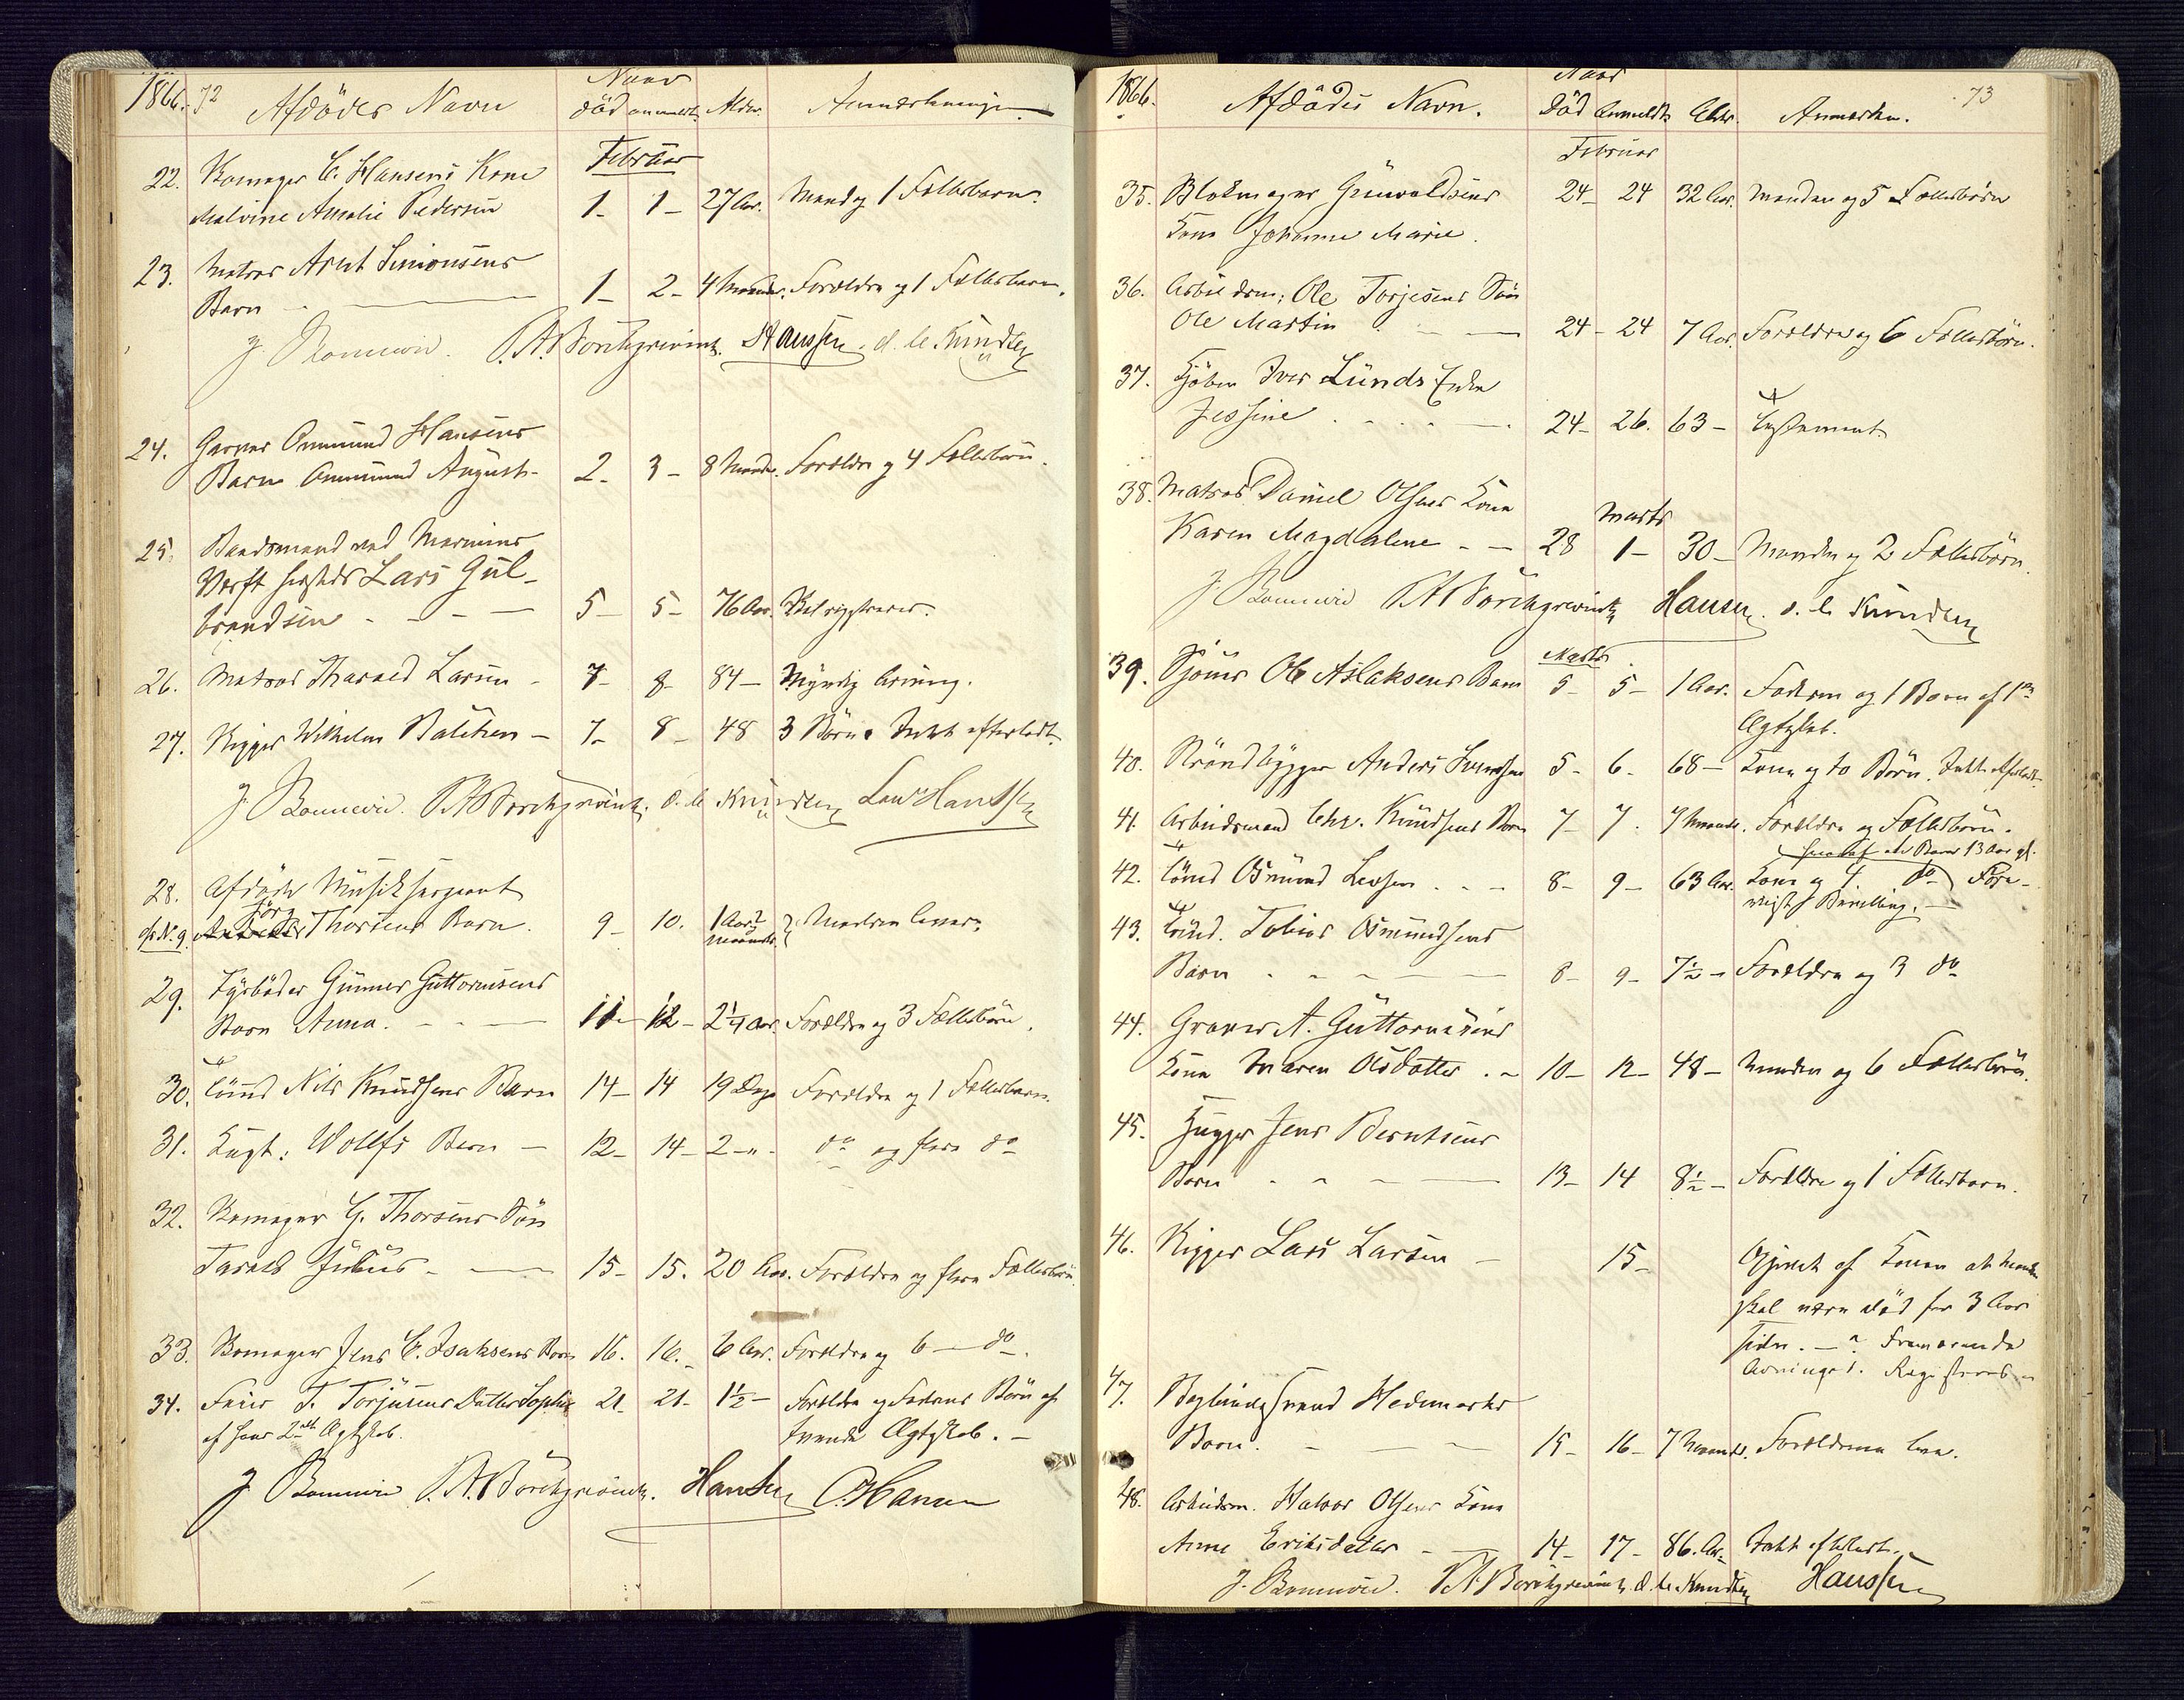 1866. 72
Afdödes Navn Naar död anmeldt. Alder. Anmærkninger
Februar
22. Bomager C. Hansens Kone
Malvine Amalie Pedersen 1- 1- 27 Aar. Mand og 1 Fællesbarn.
23. Matros Arnt Simonsens
Barn 1- 2- 4 Maaneder. Forældre og 1 Fællesbarn.
J. Bonnevie. P.A. Borchgrevink. Hanssen. d. le Knudtzen
24. Garver Ommund Hansens
Barn Ommund August 2- 3- 8 Maaneder. Forældre og 4 Fællesbörn.
25. Baadsmand ved Marinens
Værft Lars Gul-
brandsen 5- 5- 76 Aar.
26. Matros Tharald Larsen - 7- 8- 84- Myndig Arving.
27. Rigger Wilhelm Balchen - 7- 8- 48 3 Börn. Intet efterladt.
J. Bonnevie. P.A. Borchgrevink. d. le Knudtzen Hanssen
28. Afdöde Musiksergeant
cfr. N. 9. Jörg Thorsens Barn. 9- 10. 1 Aar 2 Maaneder. Moderen lever.
29. Fyrböder Gunner Guttormsens
Barn Anna. 11- 12- 2¼ Aar. Forældre og 3 Fællesbörn.
30. Nils Knudsens Barn 14- 14 19 Dage Forældre og 1 Fællesbarn.
31. Wollfs Barn - 12- 14- 2 -"- do og flere do
32. Bomager G. Thorsens Sön
Tarald Julius - 15- 15. 20 Aar. Forældre og flere Fællesbörn.
33. Bomager Jens C. Isaksens Barn 16. 16. 6 Aar. Forældre og 6 - do.
34. Feier T. Torjusens Datter Sophie 21. 21. 1½- Forældre og Faderens Börn af
af hans 2det Ægteskab. tvende Ægteskab. -
J. Bonnevie P.A. Borchgrevink. Hanssen C. Hansen
1866. 73
Afdödes Navn. Naar Död Anmeldt Alder. Anmærkn.
Februar
35. Blokmager Grünvaldsens 24- 24 32 Aar. Manden og 5 Fællesbörn
Kone Johanne Marie.
36. Arbeidsm. Ole Torjesens Sön
Ole Martin 24- 24 7 Aar. Forældre og 6 Fællesbörn.
37. Iver Lunds Enke
Jessine 24- 26. 63- Testament
38. Matros Daniel Olsens Kone Marts
Karen Magdalene - - 28 1- 30- Manden og 2 Fællesbörn.
J. Bonnevie P.A. Borchgrevink Hansen. d. le Knudtzen
Marts
39. Ole Aslaksens Barn 5- 5- 1 Aar. Faderen og 1 Barn af 1ste
Ægteskab.
40. Anders Svendsen 5- 6- 68- Kone og to Börn. Intet efterladt.
41. Arbeidsmand Chr. Knudsens Barn 7- 7. Forældre og Fællesbörn.
hvoraf et Barn 13 Aar gl.
42. Osmund Leversen 8- 9- 63 Aar. Kone og 4 do
Bevilling. -
43. Tobias Osmundsens
Barn 8- 9- 7½- Forældre og 3 do
44. Graver A. Guttormsens
Kone Maren Olsdatter 10- 12- 48- Manden og 6 Fællesbörn.
45. Jens Berntsens
Barn 13- 14 8½- Forældre og 1 Fællesbarn.
46. Rigger Lars Larsen - 15- af Konen at Manden
skal være död for 3 Aar
siden. Fraværende
Arvinger. Registreret
47. Hedemarks
Barn. 15- 16- 7 Maaneder. Forældrene leve.
48. Arbeidsm. Halvor Olsens Kone
Anne Eriksdatter 14- 17- 86. Aar Intet efterladt.
J. Bonnevie. P.A. Borchgrevink. d. le Knudtzen Hanssen